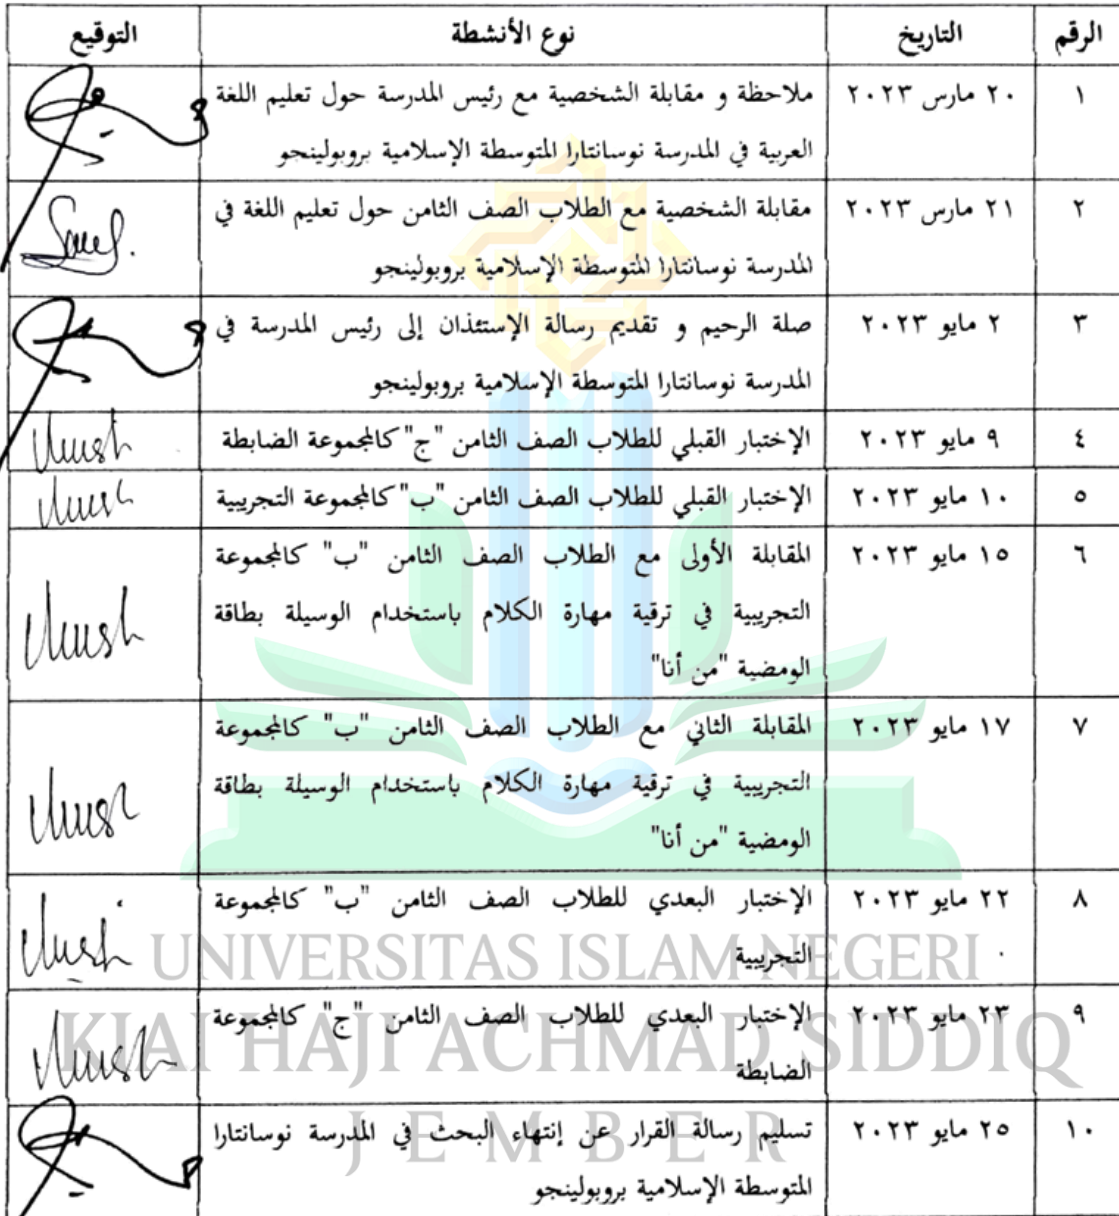 الرقم التاريخ نوع الأنشطة التوقيع
١ ٢٠ مارس ٢٠٢٣ ملاحظة و مقابلة الشخصية مع رئيس المدرسة حول تعليم اللغة
العربية في المدرسة نوسانتارا المتوسطة الإسلامية بروبولينجو
٢ ٢١ مارس ٢٠٢٣ مقابلة الشخصية مع الطلاب الصف الثامن حول تعليم اللغة في
المدرسة نوسانتارا المتوسطة الإسلامية بروبولينجو
٣ ٢ مايو ٢٠٢٣ صلة الرحيم و تقديم رسالة الإستئذان إلى رئيس المدرسة في
المدرسة نوسانتارا المتوسطة الإسلامية بروبولينجو
٤ ٩ مايو ٢٠٢٣ الإختبار القبلي للطلاب الصف الثامن "ج" كالمجموعة الضابطة
٥ ١٠ مايو ٢٠٢٣ الإختبار القبلي للطلاب الصف الثامن "ب" كالمجموعة التجريبية
٦ ١٥ مايو ٢٠٢٣ المقابلة الأولى مع الطلاب الصف الثامن "ب" كالمجموعة
التجريبية في ترقية مهارة الكلام باستخدام الوسيلة بطاقة
الومضية "من أنا"
٧ ١٧ مايو ٢٠٢٣ المقابلة الثاني مع الطلاب الصف الثامن "ب" كالمجموعة
التجريبية في ترقية مهارة الكلام باستخدام الوسيلة بطاقة
الومضية "من أنا"
٨ ٢٢ مايو ٢٠٢٣ الإختبار البعدي للطلاب الصف الثامن "ب" كالمجموعة
التجريبية
UNIVERSITAS ISLAM NEGERI
٩ ٢٣ مايو ٢٠٢٣ الإختبار البعدي للطلاب الصف الثامن "ج" كالمجموعة
KIAI HAJI ACHMAD SIDDIQ
الضابطة
١٠ ٢٥ مايو ٢٠٢٣ تسليم رسالة القرار عن إنتهاء البحث في المدرسة نوسانتارا
JEMBER
المتوسطة الإسلامية بروبولينجو